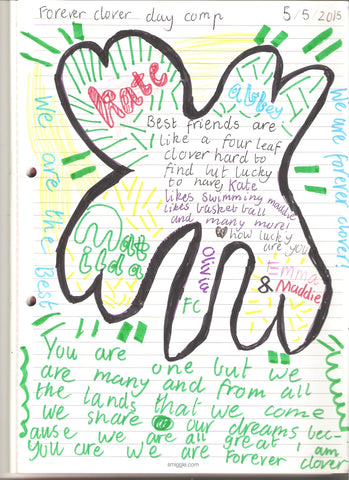 Forever clover day comp
5/5/2015
Kate
abbey
Best friends are
like a four leaf
clover hard to
find but lucky
to have, Kate
likes swimming maddie
likes basketball
and many more!
how lucky
are you
Matilda
Olivia
FC
Emma
&
Maddie
We are the Best
We are forever clover!
You are one but we
are many and from all
the lands that we come
we share our dreams bec-
ause we are all great i am
you are we are Forever clover
smiggle.com